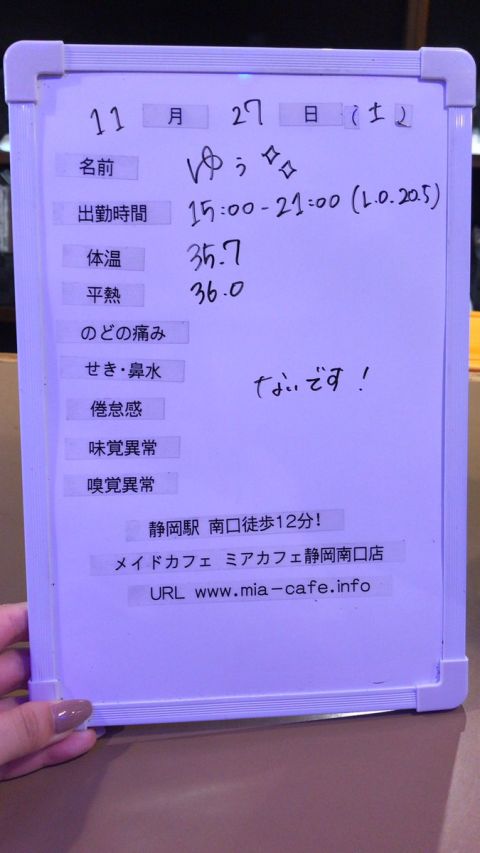 11 月 27 日 (土)
名前 ゆう
出勤時間 15:00-21:00 (L.O.20.5)
体温 35.7
平熱 36.0
のどの痛み
せき・鼻水
ないです!
倦怠感
味覚異常
嗅覚異常
静岡駅 南口徒歩12分!
メイドカフェ ミアカフェ静岡南口店
URL www.mia-cafe.info